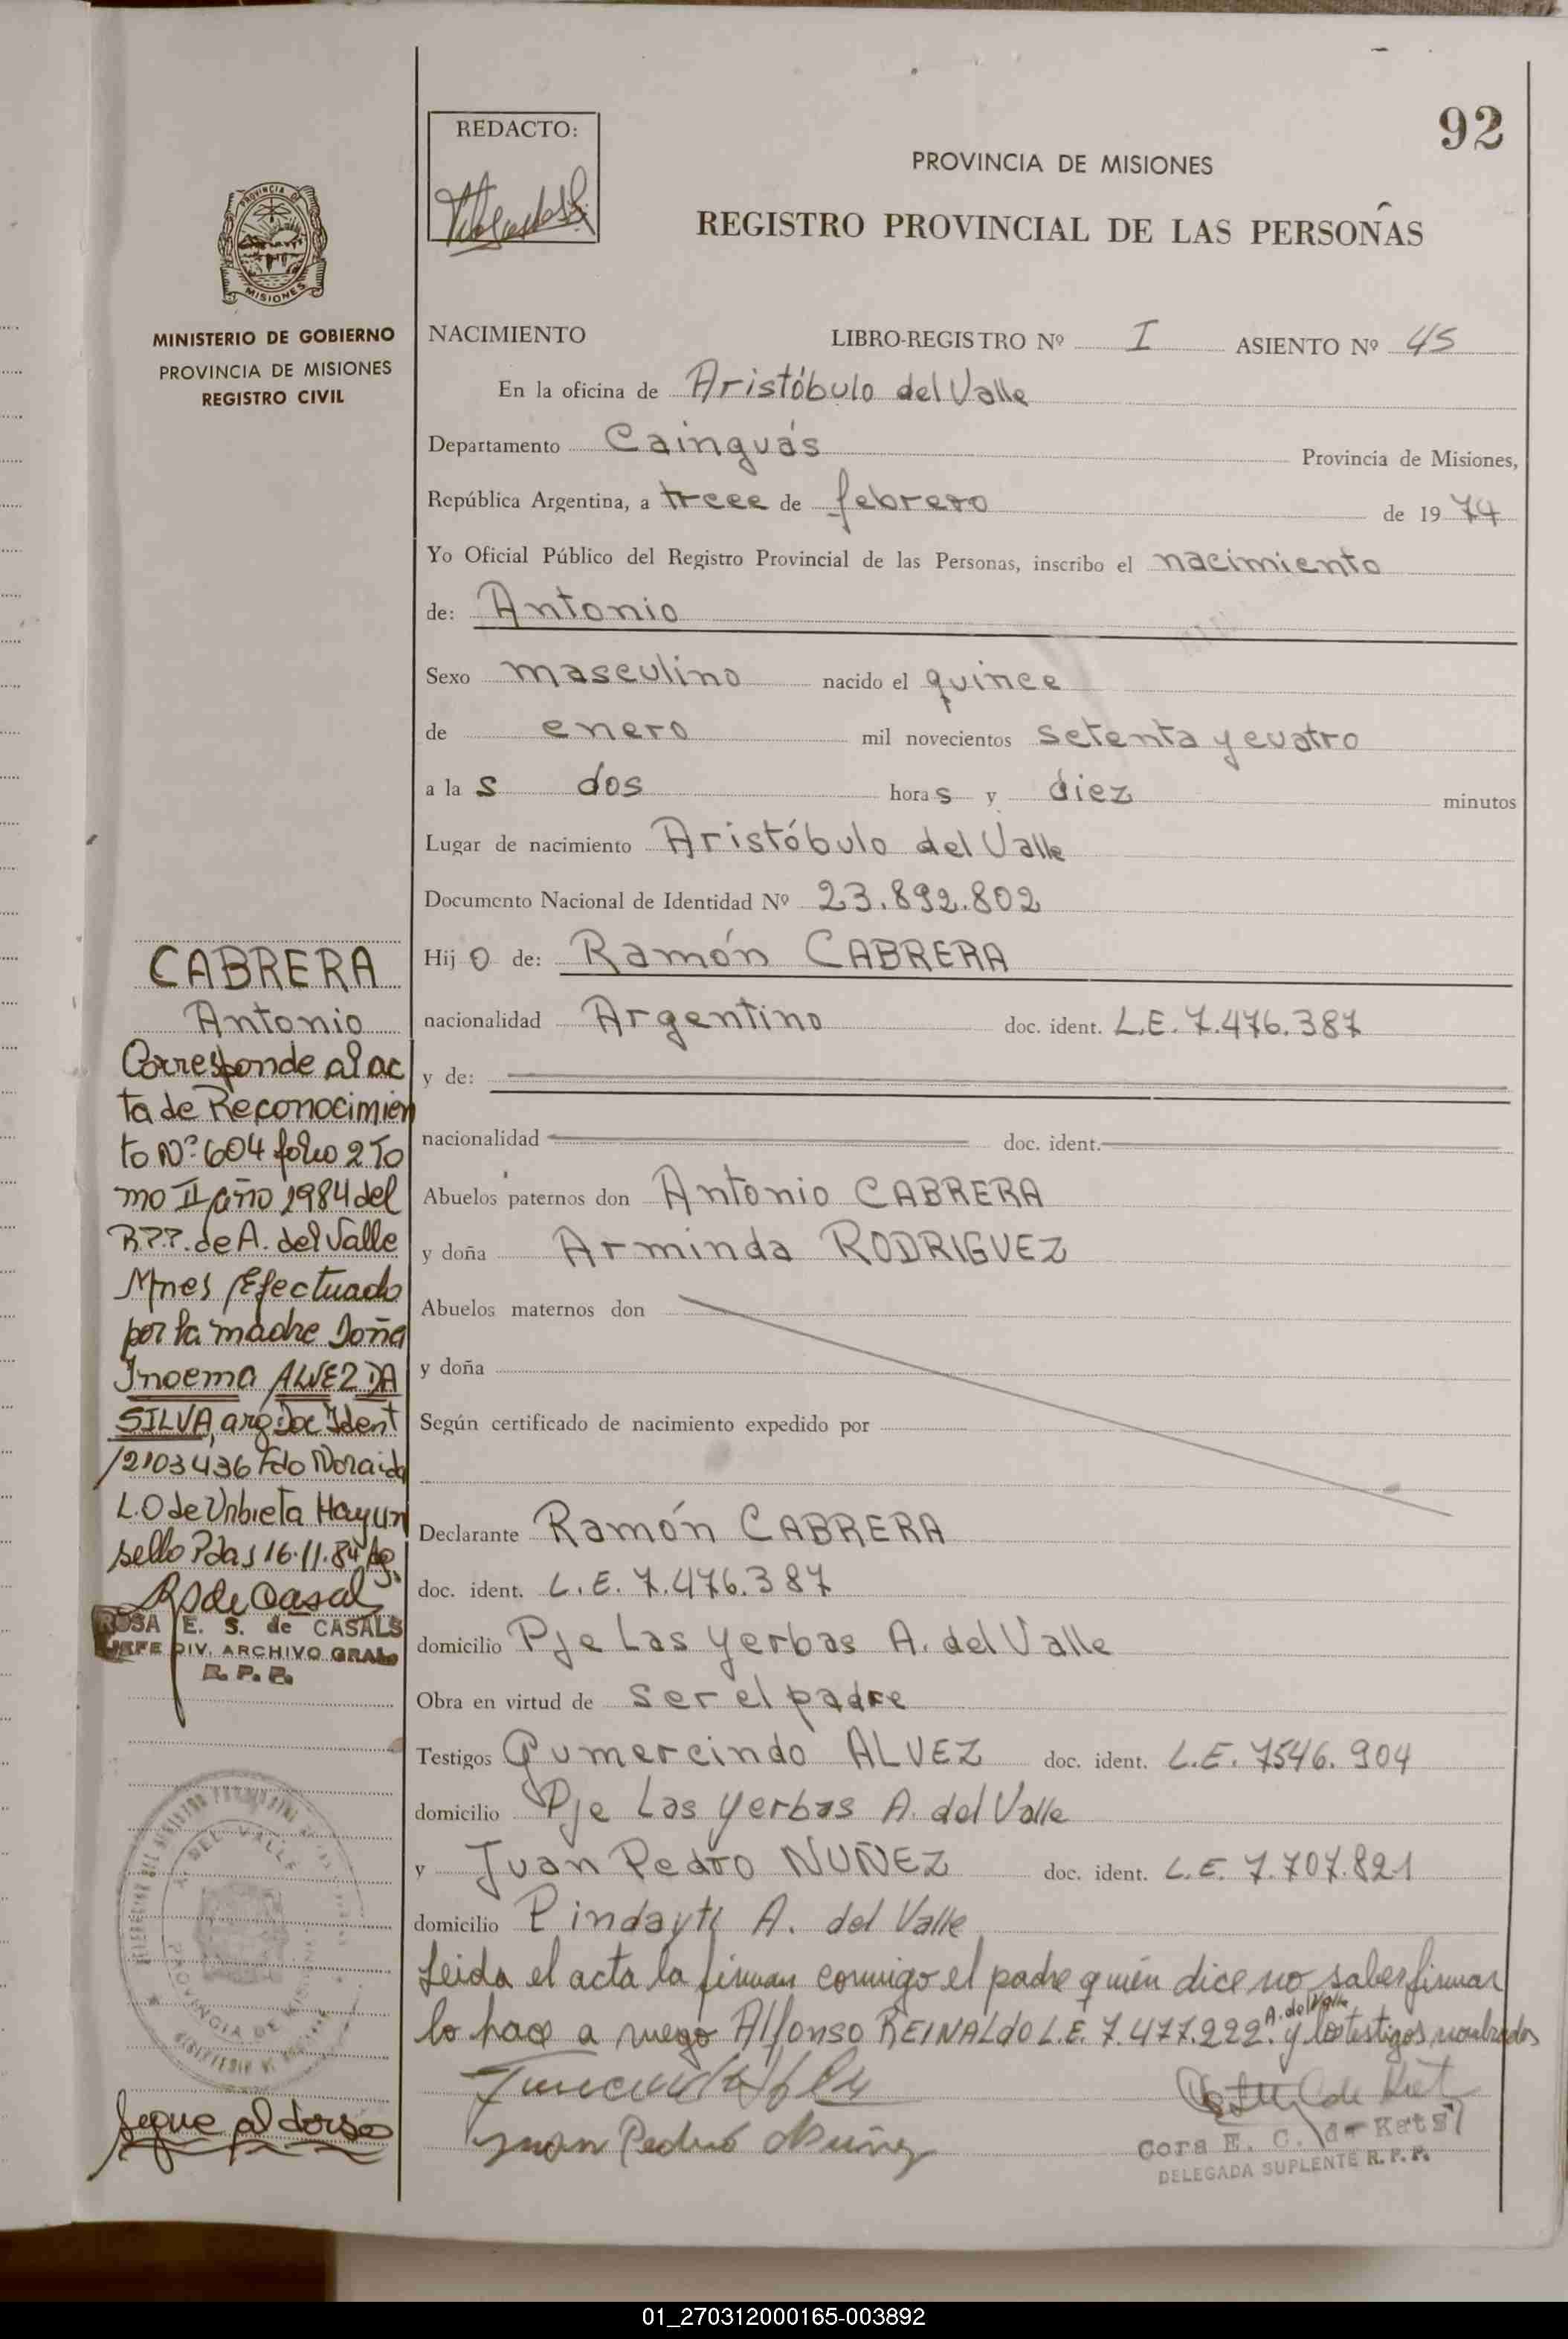 92
REDACTO:
PROVINCIA DE MISIONES
REGISTRO PROVINCIAL DE LAS PERSONAS
PROVINCIA DE
MISIONES
MINISTERIO DE GOBIERNO
PROVINCIA DE MISIONES
REGISTRO CIVIL
NACIMIENTO LIBRO-REGISTRO Nº I ASIENTO Nº 45
En la oficina de Aristóbulo del Valle
Departamento Cainguás Provincia de Misiones,
República Argentina, a trece de febrero de 1974
Yo Oficial Público del Registro Provincial de las Personas, inscribo el nacimiento
de: Antonio
Sexo masculino nacido el quince
de enero mil novecientos setenta y cuatro
a las dos horas y diez minutos
Lugar de nacimiento Aristóbulo del Valle
Documento Nacional de Identidad Nº 23.892.802
Hijo de: Ramón CABRERA
nacionalidad Argentino doc. ident. L.E. 7.476.387
y de:
nacionalidad doc. ident.
Abuelos paternos don Antonio CABRERA
y doña Arminda RODRIGUEZ
Abuelos maternos don
y doña
Según certificado de nacimiento expedido por
Declarante Ramón CABRERA
doc. ident. L.E. 7.476.387
domicilio Pje Las Yerbas A. del Valle
Obra en virtud de ser el padre
Testigos Gumercindo ALVEZ doc. ident. L.E. 7546.904
domicilio Pje Las Yerbas A. del Valle
y Juan Pedro NUÑEZ doc. ident. L.E. 7.707.821
domicilio Pindayti A. del Valle
Leida el acta la firman conmigo el padre quién dice no saber firmar
lo hace a ruego Alfonso REINALDO L.E. 7.477.222. A. del Valle y los testigos nombrados
Juan Pedro Nuñez
Cora E. C. de Katsi
DELEGADA SUPLENTE R.P.P.
CABRERA
Antonio
Corresponde al ac
ta de Reconocimien
to Nº 604 folio 2 To
mo II año 1984 del
R.P.P. de A. del Valle
Mnes Efectuado
por la madre Doña
Inoema ALVEZ DA
SILVA, arg. Doc Ident
12103436 Fdo Noraida
L.O de Urbieta Hay un
sello Pdas 16.11.84
ROSA E. S. de CASALS
JEFE DIV. ARCHIVO GRAL
R. P. P.
A. DEL VALLE
PROVINCIA DE MISIONES
Segue al dorso
01_270312000165-003892